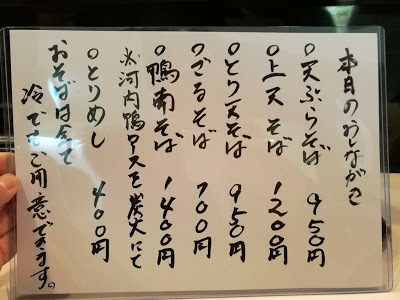 本日のおしながき
○天ぷらそば 950円
○上天そば 1200円
○とり天そば 950円
○ざるそば 700円
○鴨南そば 1400円
※河内鴨ロースを炭火にて
○とりめし 400円
おそばは全て
冷でもご用意できます。